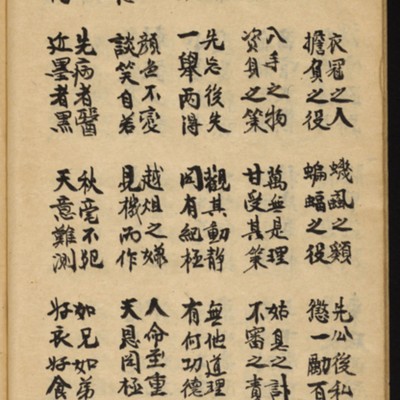 衣冠之人
擔負之役
入手之物
資負之策
先忘後失
一擧兩得
顔色不變
談笑自若
先病者醫
近墨者黑
蟣虱之類
蝙蝠之役
萬無是理
甘受其策
觀其動靜
罔有紀極
越俎之嫌
見機而作
秋毫不犯
天意難測
先公後私
懲一勵百
姑息之計
不審之責
無他道理
有何功德
人命至重
天恩罔極
如兄如弟
好衣好食